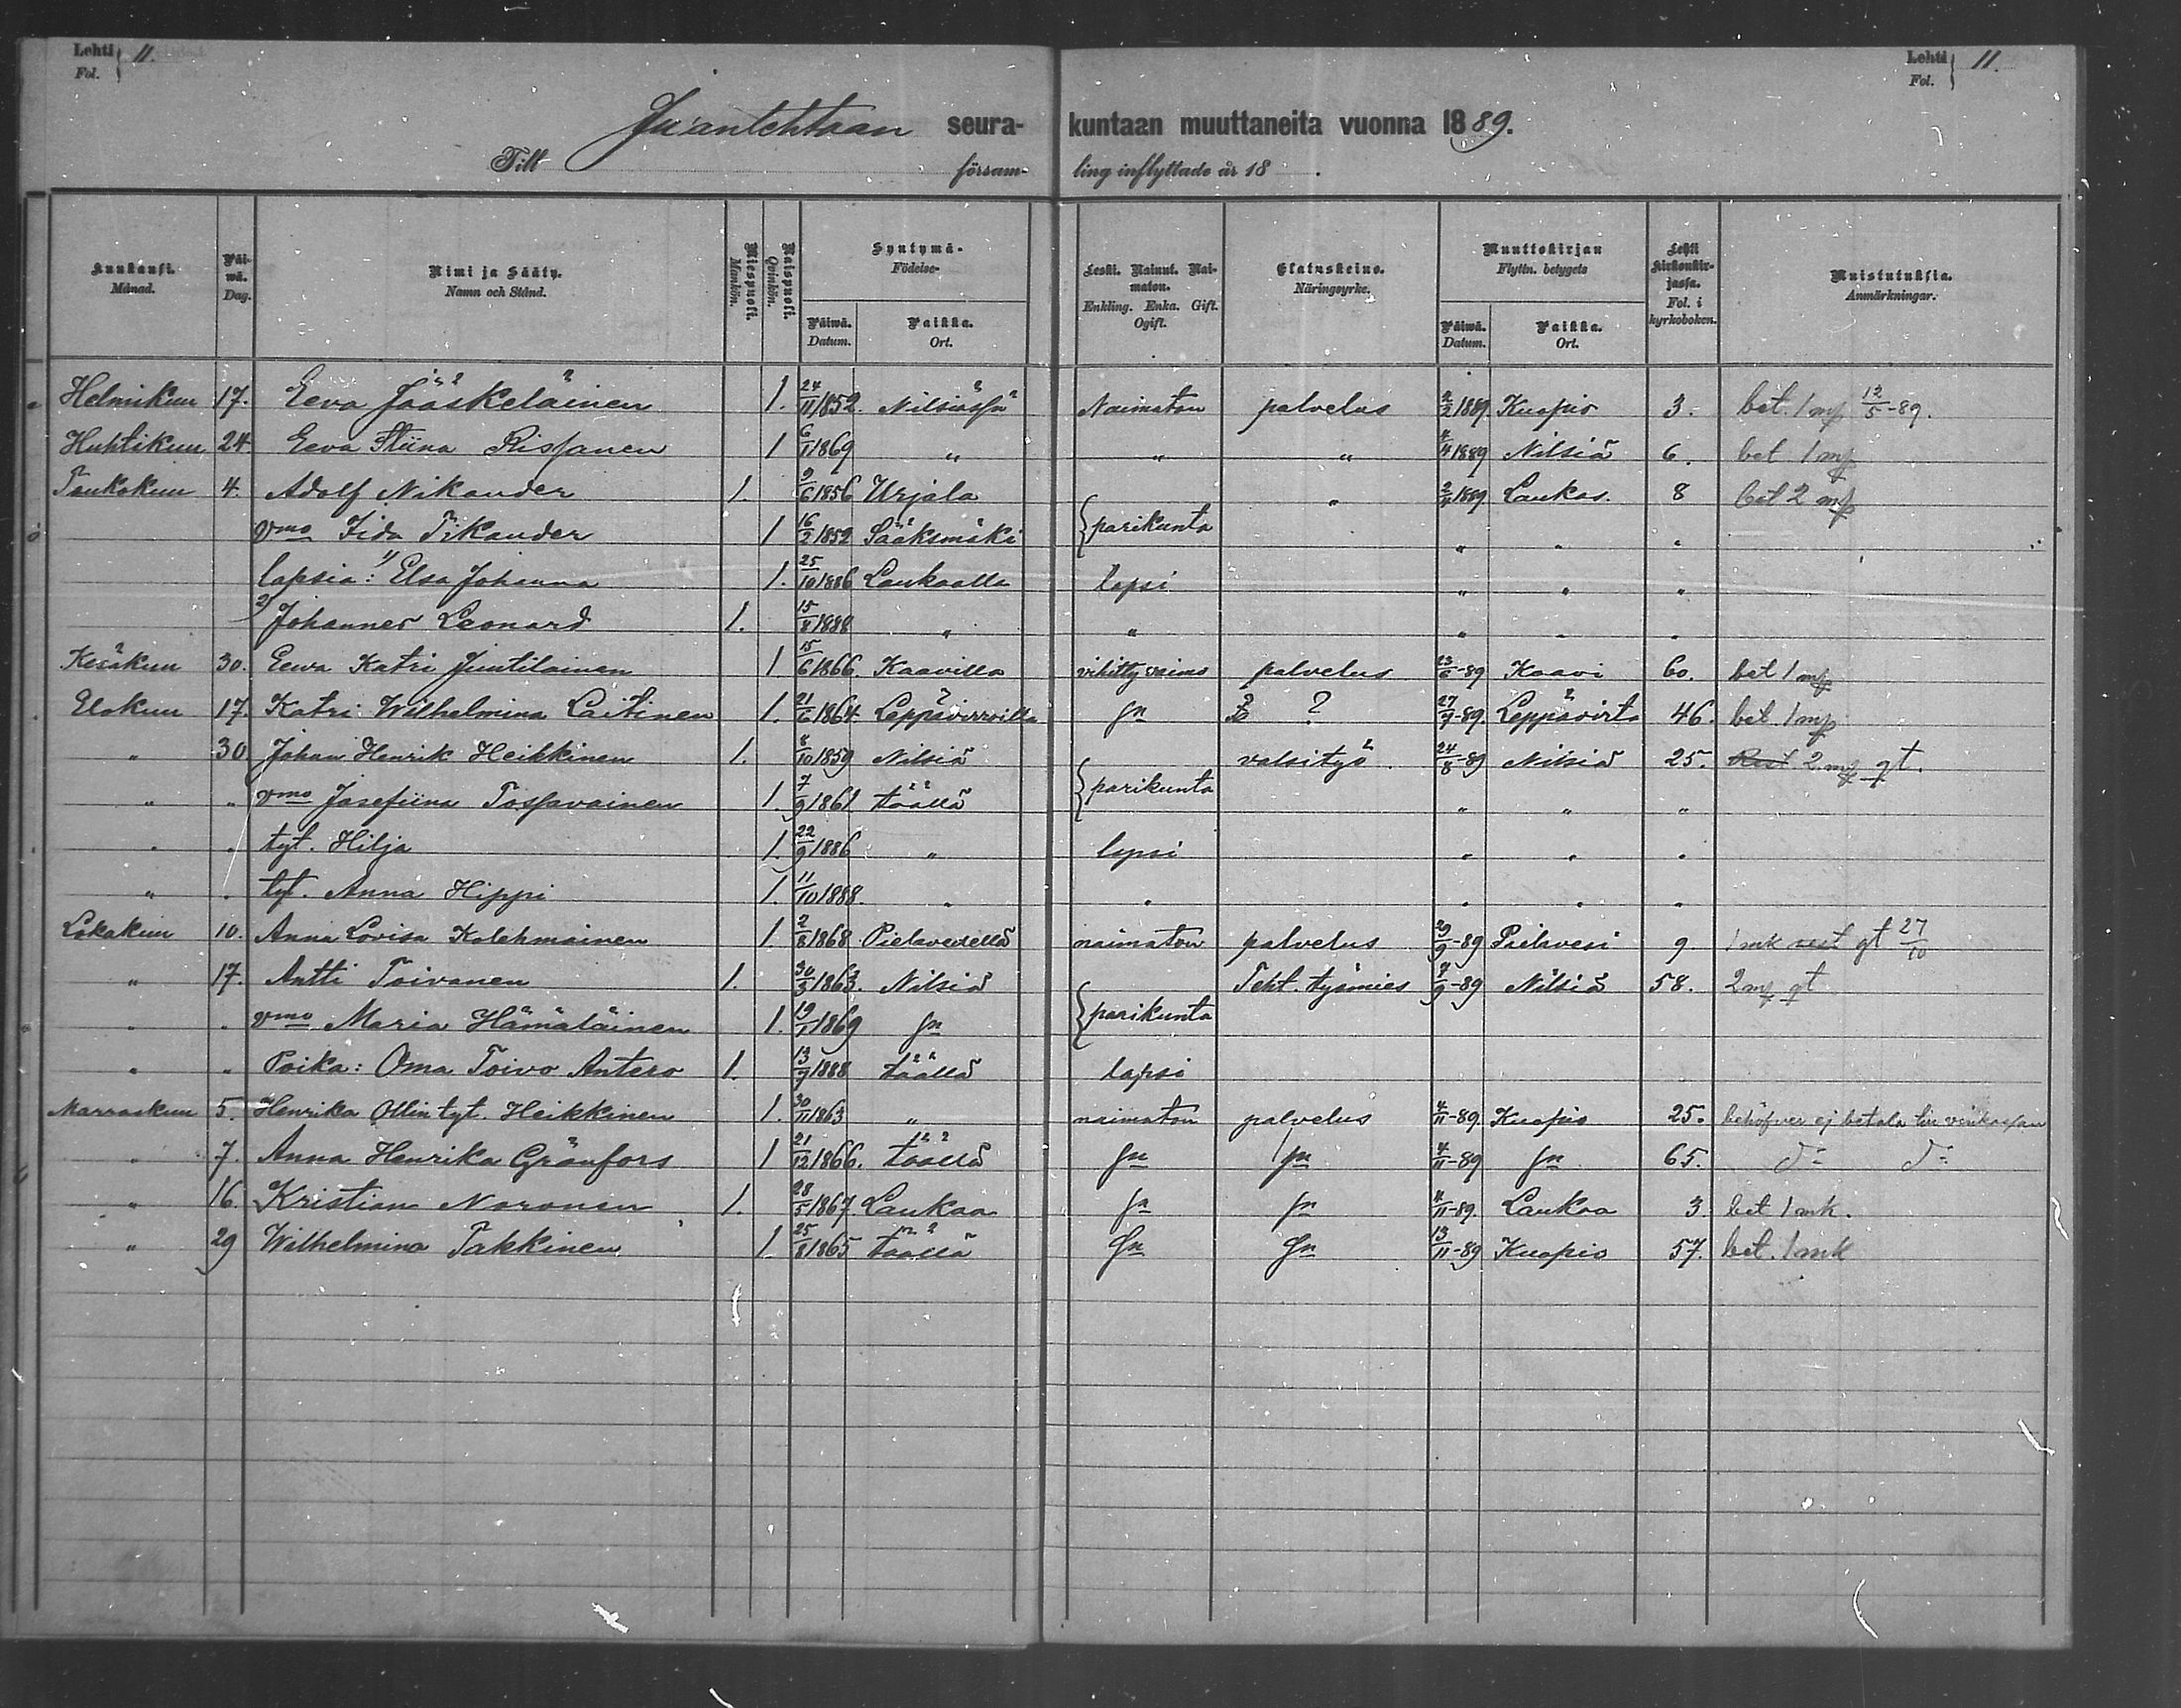 Lehti 11. Lehti 11.
Fol. Fol.
Juantehtaan seura- kuntaan muuttaneita vuonna 1889.
Till församling inflyttade år 18 .
Kuukausi. Månad. Päiwä. Dag. Nimi ja Sääty. Namn och Stånd. Miespuoli. Mankön. Naispuoli. Qvinkön. Syntymä- Födelse- Päiwä. Datum. Paikka. Ort. Leski. Nainut. Naimaton. Enkling. Enka. Gift. Ogift. Elatuskeino. Näringsyrke. Muuttokirjan Flyttn. betygets Päiwä. Datum. Paikka. Ort. Lehti kirkonkirjassa. Fol. i kyrkoboken. Muistutuksia. Anmärkningar.
Helmikuu 17. Eeva Jääskeläinen 1. 24/11 1852. Nilsiässä Naimaton palvelus 2/2 1889. Kuopio 3. bet. 1 mk 12/5 -89.
Huhtikuu 24. Eeva Stiina Rissanen 1 6/1 1869 " " " 4/4 1889 Nilsiä 6. bet 1 mk
Toukokuu 4. Adolf Nikander 1. 9/6 1856 Urjala " 1889. Laukas. 8 bet 2 mk
vmo Iida Tikander 1 16/2 1852 Sääksmäki parikunta " " "
lapsia: 1) Elsa Johanna 1. 25/10 1886 Laukaalla lapsi " " "
2) Johannes Leonard 1. 15/8 1888 " " " " "
Kesäkuu 30. Eewa Katri Juntilainen 1 15/6 1866. Kaavilla vihitty vaimo palvelus 23/6 -89 Kaavi 60. bet 1 mk
Elokuu 17. Katri Wilhelmina Laitinen 1. 21/6 1864. Leppävirroilla sn ? 27/7 -89. Leppävirta 46. bet 1 mk
" 30 Johan Henrik Heikkinen 1. 8/10 1859 Nilsiä valsityö 24/8 -89 Nilsiä 25. Rest 2 mk gt.
" " vmo Josefiina Tossavainen 1. 7/9 1861 täällä parikunta " " "
" " tyt. Hilja 1. 22/9 1886 " lapsi " " "
" " tyt. Anna Hippi 1. 11/10 1888. " " " " "
Lokakuu 10. Anna Lovisa Kolehmainen 1. 2/8 1868 Pielavedellä naimaton palvelus 29/9 -89 Pielavesi 9. 1 mk rest gt 27/10
" 17. Antti Toivanen 1. 30/3 1863. Nilsiä Teht. työmies 7/9 -89 Nilsiä 58. 2 mk gt
" " vmo Maria Hämäläinen 1. 19/1 1869 sn parikunta
" " Poika: Oma Toivo Antero 1. 13/9 1888 täällä lapsi
Marraskuu 5. Henrika Ollin tyt. Heikkinen 1. 30/11 1863 " naimaton palvelus 4/11 -89. Kuopio 25. behöfver ej betala
" 7. Anna Henrika Grönfors 1 21/12 1866. täällä sn sn 4/11 -89 sn 65. do do
" 16. Kristian Noronen 1. 28/5 1867. Laukaa sn sn 4/11 -89. Laukaa 3. bet 1 mk.
" 29 Wilhelmina Pakkinen 1. 25/8 1865 täällä sn sn 13/11 -89 Kuopio 57. bet. 1 mk